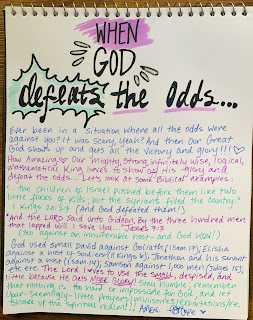 WHEN
GOD
defeats the odds...
Ever been in a situation where all the odds were
against you? It was scary, yeah? And then our Great
God shows up and gets all the victory and glory!!!!
How Amazing Our "mighty, strong, infinitely wise, logical,
mathematical King loves to show us His glory and
defeat the odds... Let's look at some "Biblical" examples:
"the children of Israel pitched before them like two
little flocks of kids; but the Syrians filled the country."
1 Kings 20:27 (And God defeated them!)
"And the LORD said unto Gideon, By the three hundred men
that lapped will I save you..." 7:7
(300 against an innumerable host - and God won!)
God used small David against Goliath (1 Sam. 17); Elisha
against a host of soldiers (II Kings 6); Jonathan and his servant
against a host (1 Sam. 14); Samson against 1,000 men (Judges 15);
etc. etc. The Lord loves to use the small, despised, and
little because He gets More Glory! Stay humble; remember
that nothing is too hard or impossible for God; and let
your seemingly-little prayers/ministries/exhortations/etc.
be part of the spiritual realm!!! AMEN.